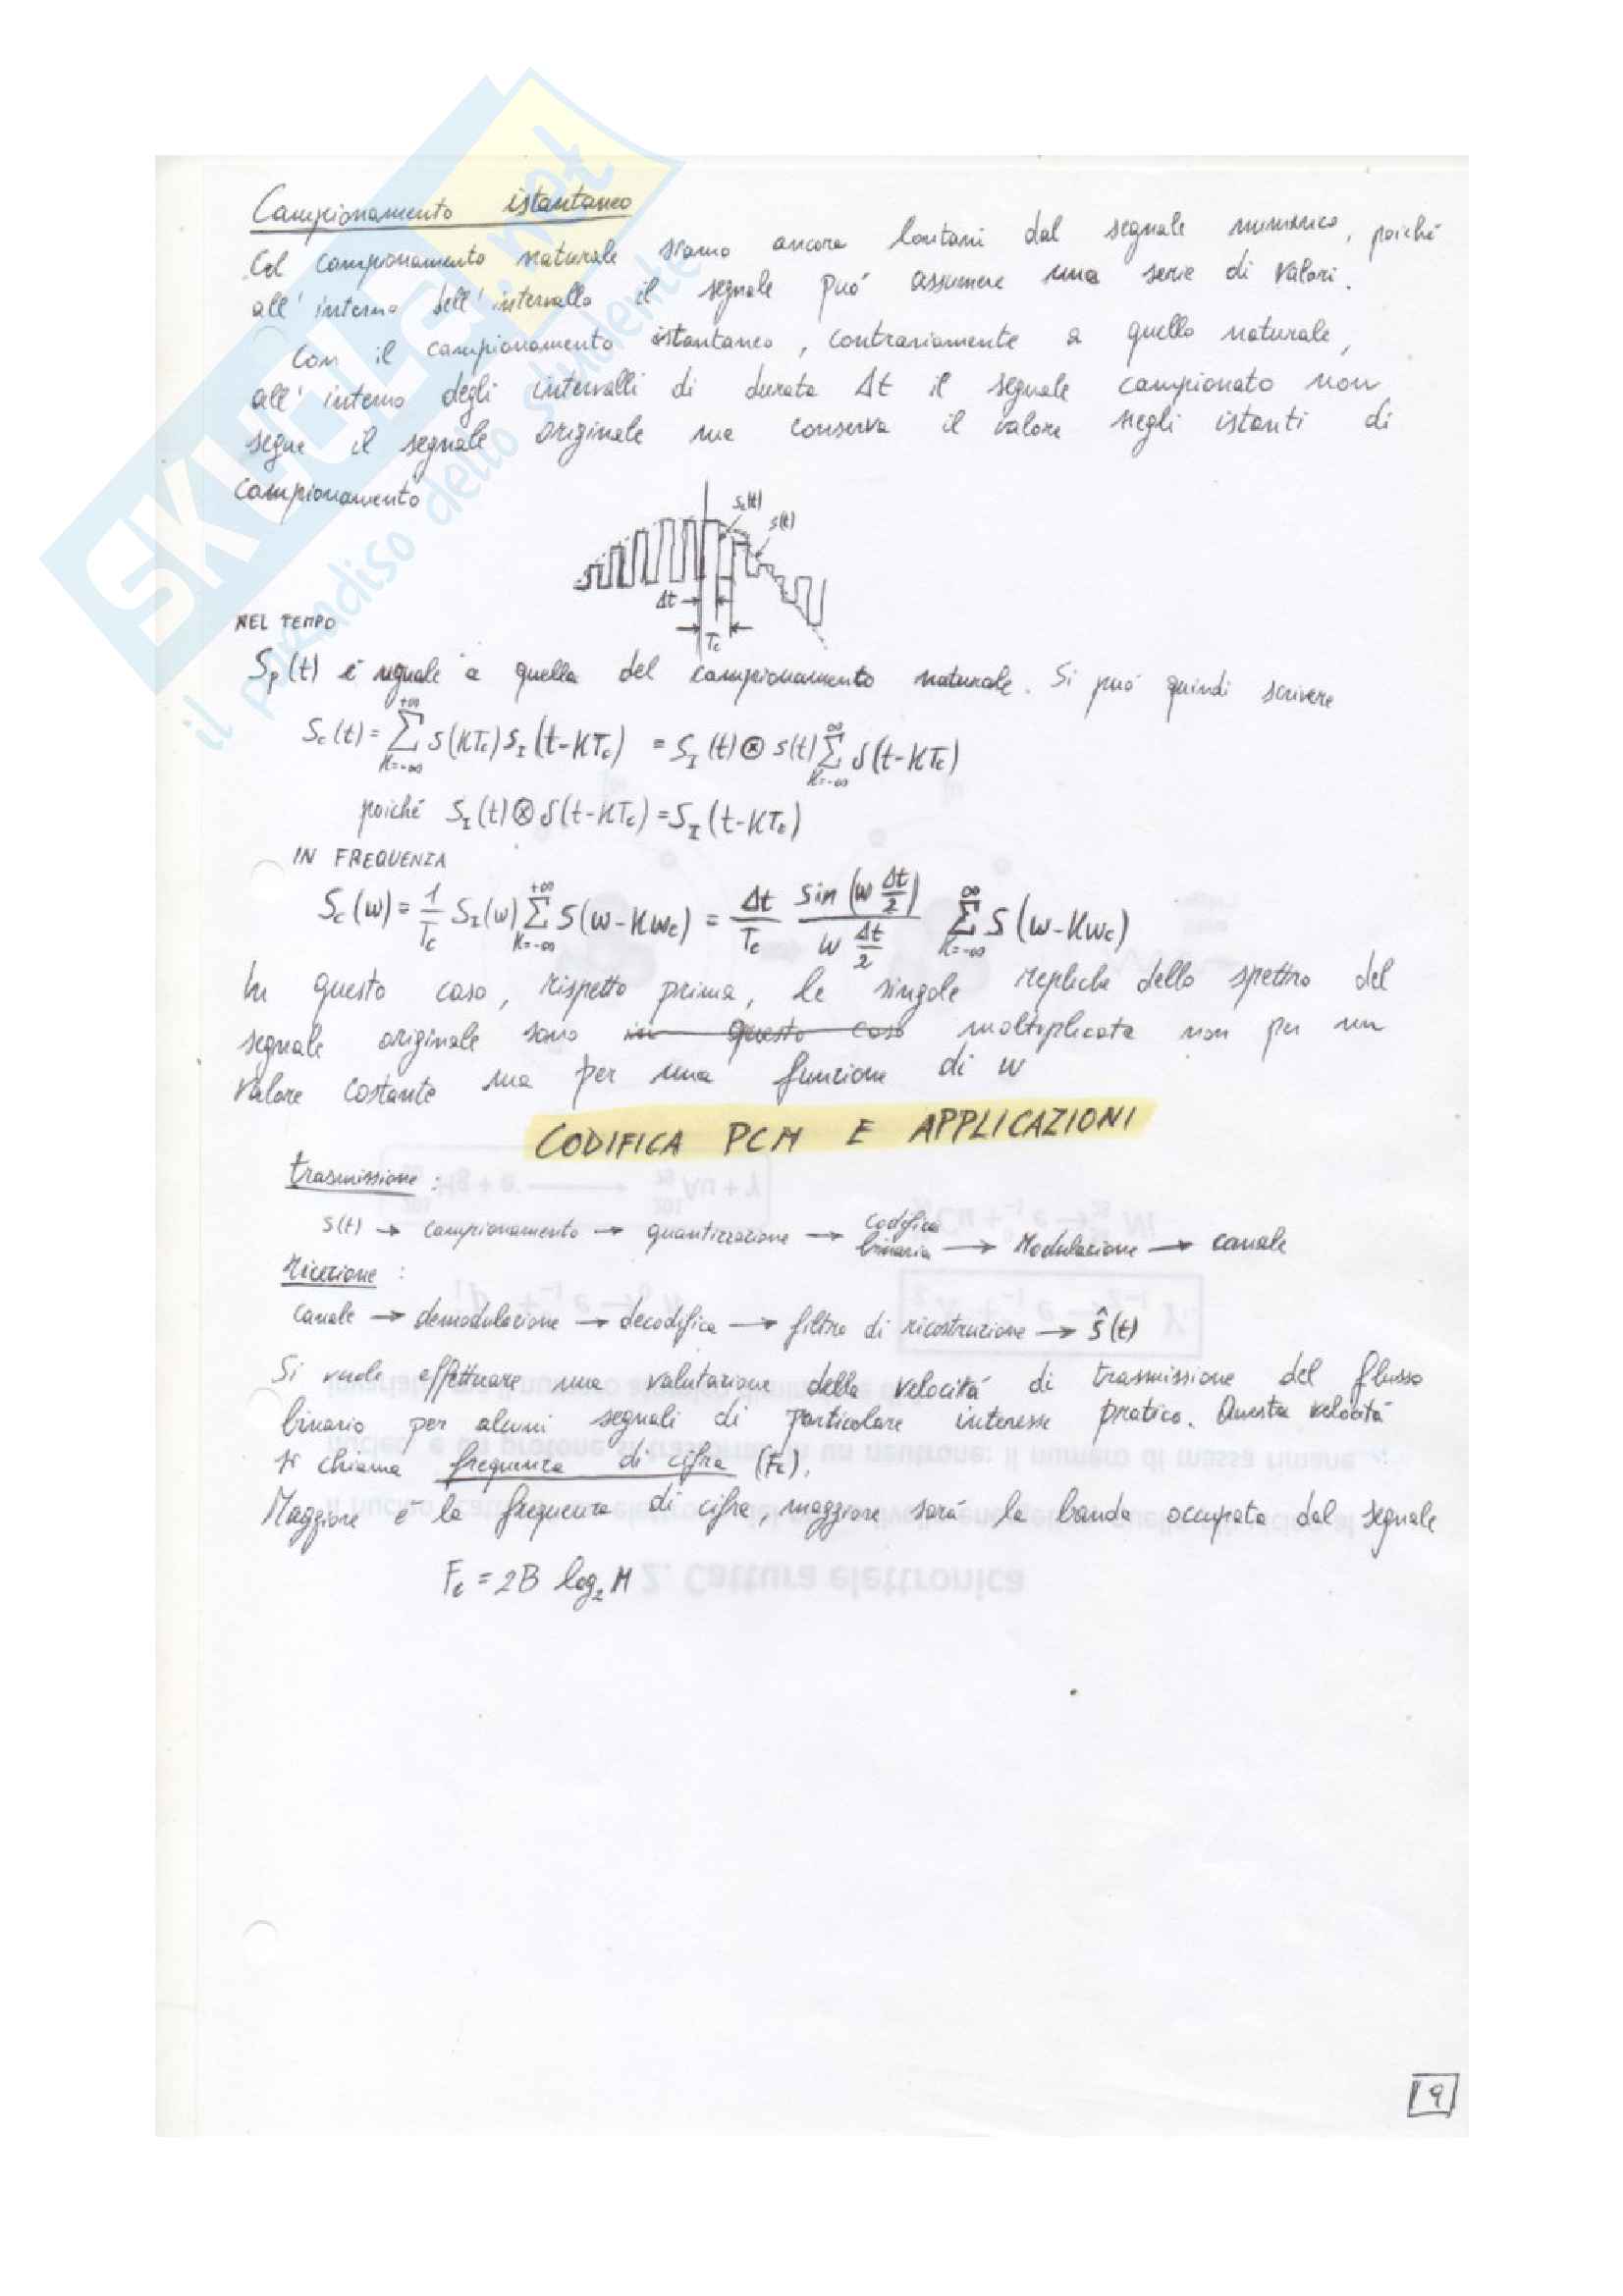 Campionamento istantaneo
Col campionamento naturale siamo ancora lontani dal segnale numerico, poiché
all'interno dell'intervallo il segnale può assumere una serie di valori.
Con il campionamento istantaneo, contrariamente a quello naturale,
all'interno degli intervalli di durata Δt il segnale campionato non
segue il segnale originale ma conserva il valore negli istanti di
campionamento
Sc(t)
s(t)
Δt
Tc
NEL TEMPO
Sp(t) è uguale a quella del campionamento naturale. Si può quindi scrivere
Sc(t) = Σ_{K=-∞}^{+∞} s(KTc) s_I(t-KTc) = S_I(t) ⊗ s(t) Σ_{K=-∞}^{∞} δ(t-KTc)
poiché S_I(t) ⊗ δ(t-KTc) = S_I(t-KTc)
IN FREQUENZA
Sc(w) = 1/Tc S_I(w) Σ_{K=-∞}^{+∞} S(w-Kwc) = Δt/Tc sin(w Δt/2)/(w Δt/2) Σ_{K=-∞}^{∞} S(w-Kwc)
In questo caso, rispetto prima, le singole repliche dello spettro del
segnale originale sono in questo caso moltiplicate non per un
valore costante ma per una funzione di w
CODIFICA PCM E APPLICAZIONI
trasmissione:
s(t) → campionamento → quantizzazione → codifica binaria → Modulazione → canale
ricezione:
canale → demodulazione → decodifica → filtro di ricostruzione → ŝ(t)
Si vuole effettuare una valutazione della velocità di trasmissione del flusso
binario per alcuni segnali di particolare interesse pratico. Questa velocità
si chiama frequenza di cifra (Fc).
Maggiore è la frequenza di cifra, maggiore sarà la banda occupata dal segnale
Fc = 2B log₂ M
2. Cattura elettronica
19
SKUOLA.net
il paradiso dello studente